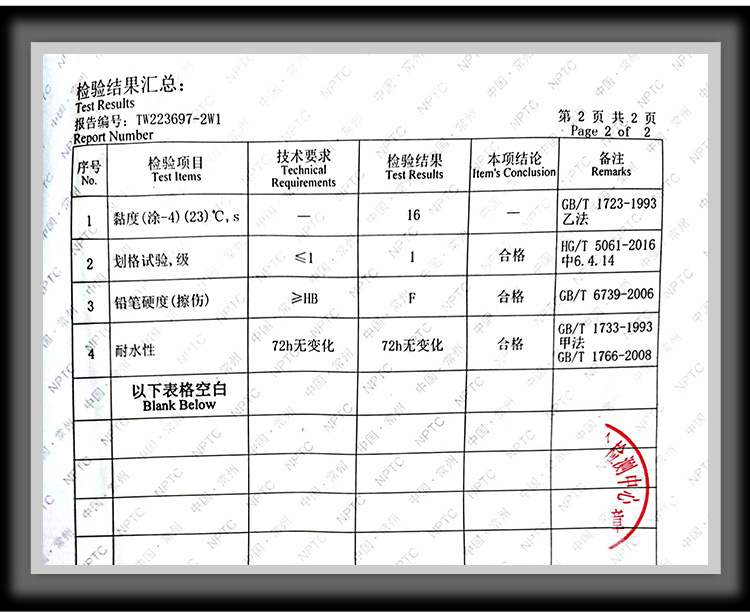 检验结果汇总：
Test Results
报告编号：TW223697-2W1
Report Number
第 2 页 共 2 页
Page 2 of 2
序号 检验项目 技术要求 检验结果 本项结论 备注
No. Test Items Technical Requirements Test Results Item's Conclusion Remarks
1 黏度(涂-4)(23)℃,s — 16 — GB/T 1723-1993
乙法
2 划格试验,级 ≤1 1 合格 HG/T 5061-2016
中6.4.14
3 铅笔硬度(擦伤) ≥HB F 合格 GB/T 6739-2006
4 耐水性 72h无变化 72h无变化 合格 GB/T 1733-1993
甲法
GB/T 1766-2008
以下表格空白
Blank Below
检测中心
章
中国·常州 NPTC